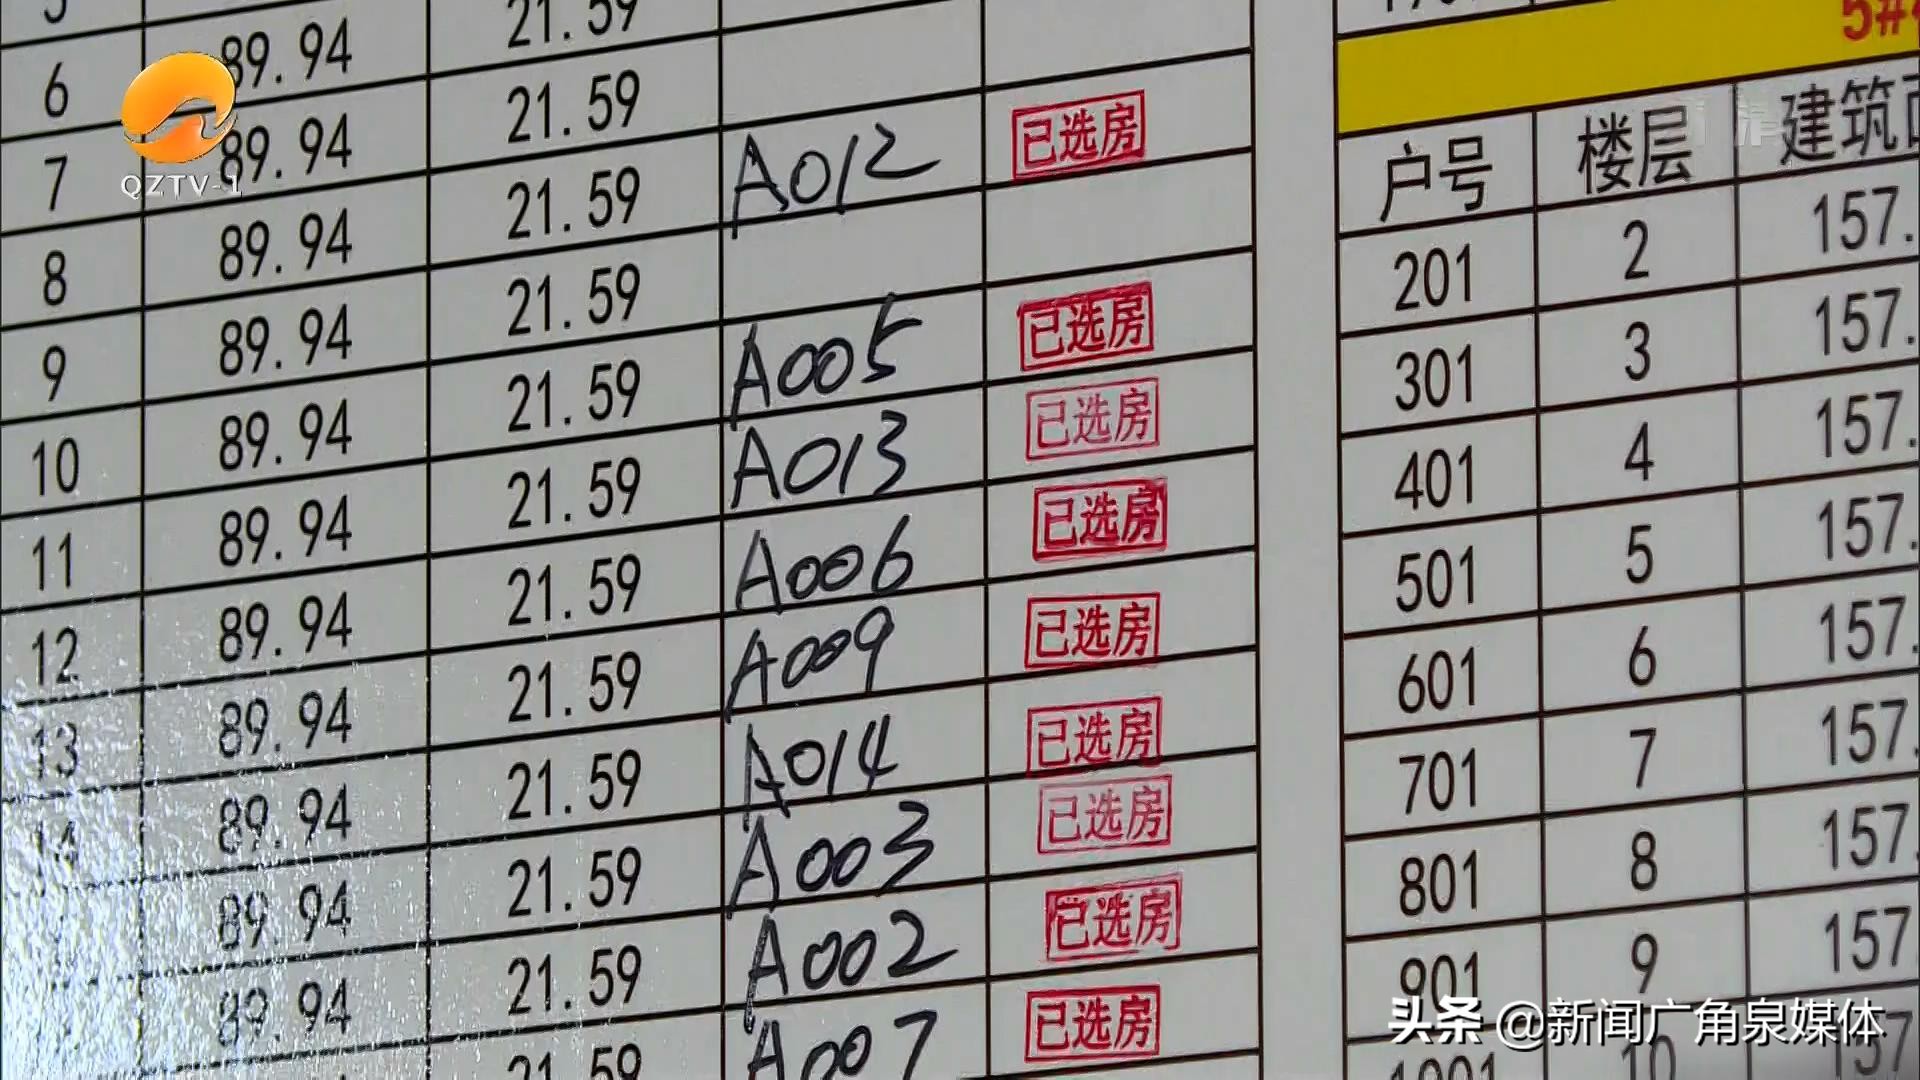 QZTV-1
6 89.94 21.59
7 89.94 21.59
8 89.94 21.59 A012 已选房
9 89.94 21.59
10 89.94 21.59 A005 已选房
11 89.94 21.59 A013 已选房
12 89.94 21.59 A006 已选房
13 89.94 21.59 A009 已选房
14 89.94 21.59 A014 已选房
89.94 21.59 A003 已选房
89.94 21.59 A002 已选房
21.59 A007 已选房
5#
户号 楼层 建筑
201 2 157.
301 3 157.
401 4 157.
501 5 157.
601 6 157.
701 7 157.
801 8 157.
901 9 157.
1001 10 157
头条 @新闻广角泉媒体